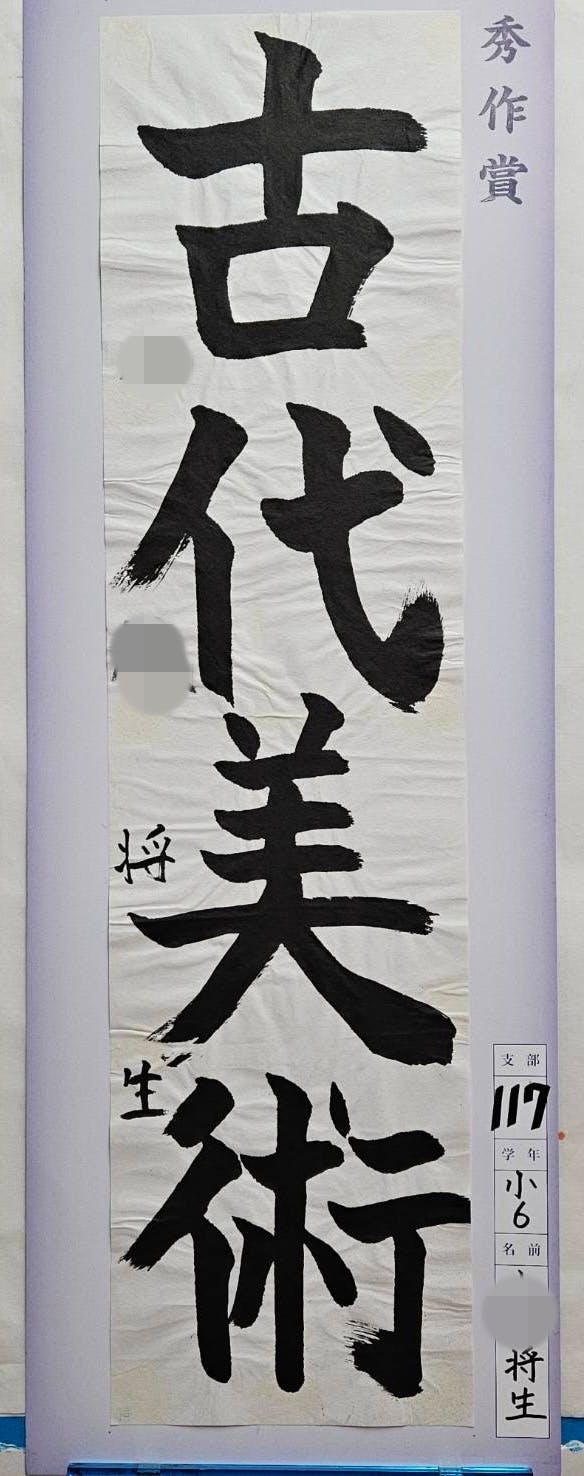 秀作賞
古代美術
将生
支部
117
学年
小6
名前
将生